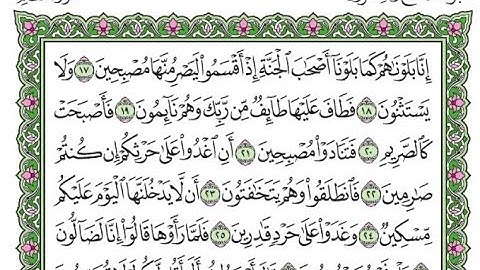 إِنَّا بَلَوْنَٰهُمْ كَمَا بَلَوْنَآ أَصْحَٰبَ ٱلْجَنَّةِ إِذْ أَقْسَمُوا۟ لَيَصْرِمُنَّهَا مُصْبِحِينَ ١٧ وَلَا
يَسْتَثْنُونَ ١٨ فَطَافَ عَلَيْهَا طَآئِفٌ مِّن رَّبِّكَ وَهُمْ نَآئِمُونَ ١٩ فَأَصْبَحَتْ
كَٱلصَّرِيمِ ٢٠ فَتَنَادَوْا۟ مُصْبِحِينَ ٢١ أَنِ ٱغْدُوا۟ عَلَىٰ حَرْثِكُمْ إِن كُنتُمْ
صَٰرِمِينَ ٢٢ فَٱنطَلَقُوا۟ وَهُمْ يَتَخَٰفَتُونَ ٢٣ أَن لَّا يَدْخُلَنَّهَا ٱلْيَوْمَ عَلَيْكُم
مِّسْكِينٌ ٢٤ وَغَدَوْا۟ عَلَىٰ حَرْدٍ قَٰدِرِينَ ٢٥ فَلَمَّا رَأَوْهَا قَالُوٓا۟ إِنَّا لَضَآلُّونَ